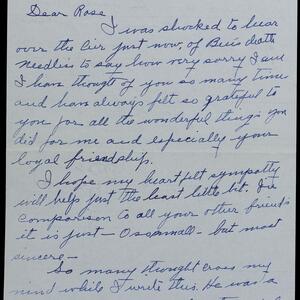 Dear Rose
I was shocked to hear
over the air just now, of Ben's death
Needless to say how very sorry I am
I have thought of you so many time
and have always felt so grateful to
you for all the wonderful things you
did for me and especially your
loyal friendship.
I hope my heart felt sympathy
will help just the least little bit. In
comparison to all your other friends
it is just – so small – but most
sincere –
So many thought cross my
mind while I write this. He was a